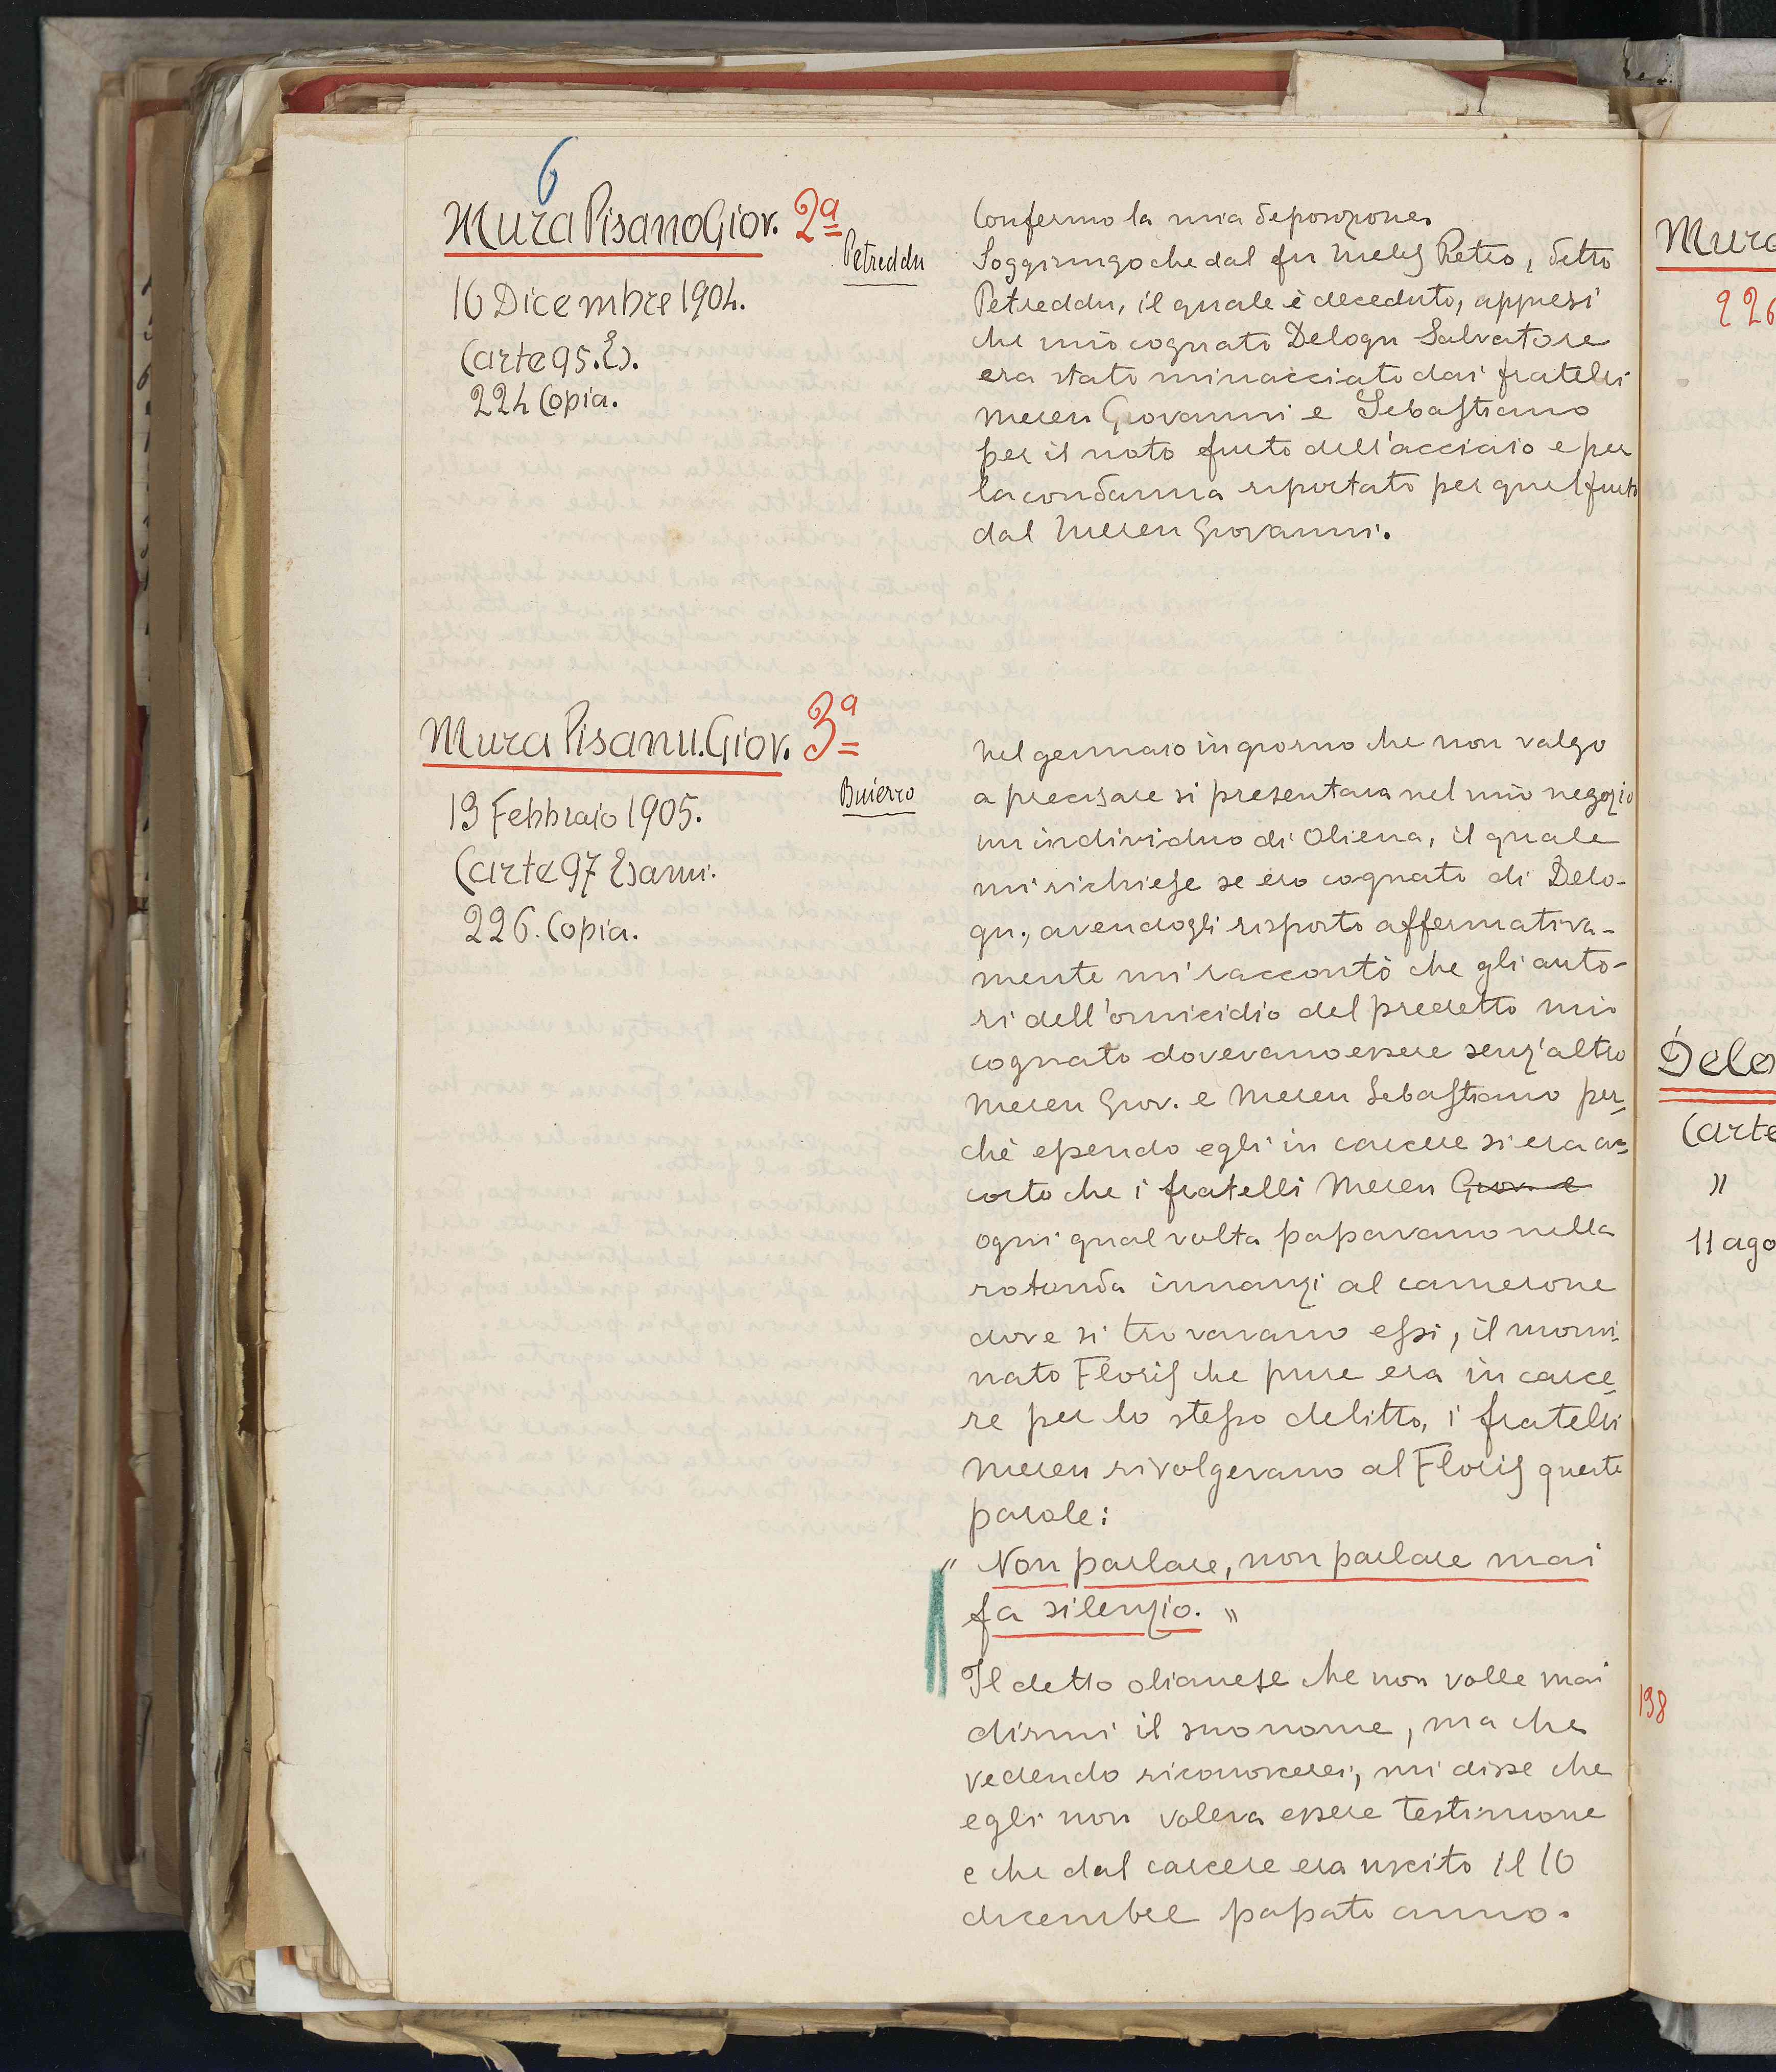 6
Mura Pisano Giov. 2ª
Petreddu
16 Dicembre 1904.
Carte 95. E).
224 Copia.
Confermo la mia deposizione.
Soggiungo che dal fu Meles Pietro, detto
Petreddu, il quale è deceduto, appresi
che mio cognato Delogu Salvatore
era stato minacciato dai fratelli
Mereu Giovanni e Sebastiano
per il noto furto dell'acciaio e per
la condanna riportato per quel furto
dal Mereu Giovanni.
Mura Pisanu. Giov. 3ª
Buierro
19 Febbraio 1905.
Carte 97 Esami.
226. Copia.
Nel gennaio in giorno che non valgo
a precisare si presentava nel mio negozio
un individuo di Oliena, il quale
mi richiese se ero cognato di Delo-
gu., avendogli risposto affermativa-
mente mi raccontò che gli auto-
ri dell'omicidio del predetto mio
cognato dovevano essere senz'altro
Mereu Giov. e Mereu Sebastiano per=
chè essendo egli in carcere si era ac=
corto che i fratelli Mereu Giov. e
ogni qual volta passavano nella
rotonda innanzi al camerone
dove si trovavano essi, il nomi=
nato Floris che pure era in carce=
re per lo stesso delitto, i fratelli
Mereu rivolgevano al Floris queste
parole:
" Non parlare, non parlare mai
fa silenzio. "
Il detto olianese che non volle mai
dirmi il suo nome, ma che
vedendo riconoscerei, mi disse che
egli non voleva essere testimone
e che dal carcere era uscito il 10
dicembre passato anno.
Mura
226
Delo
(arte
"
11 ago
198